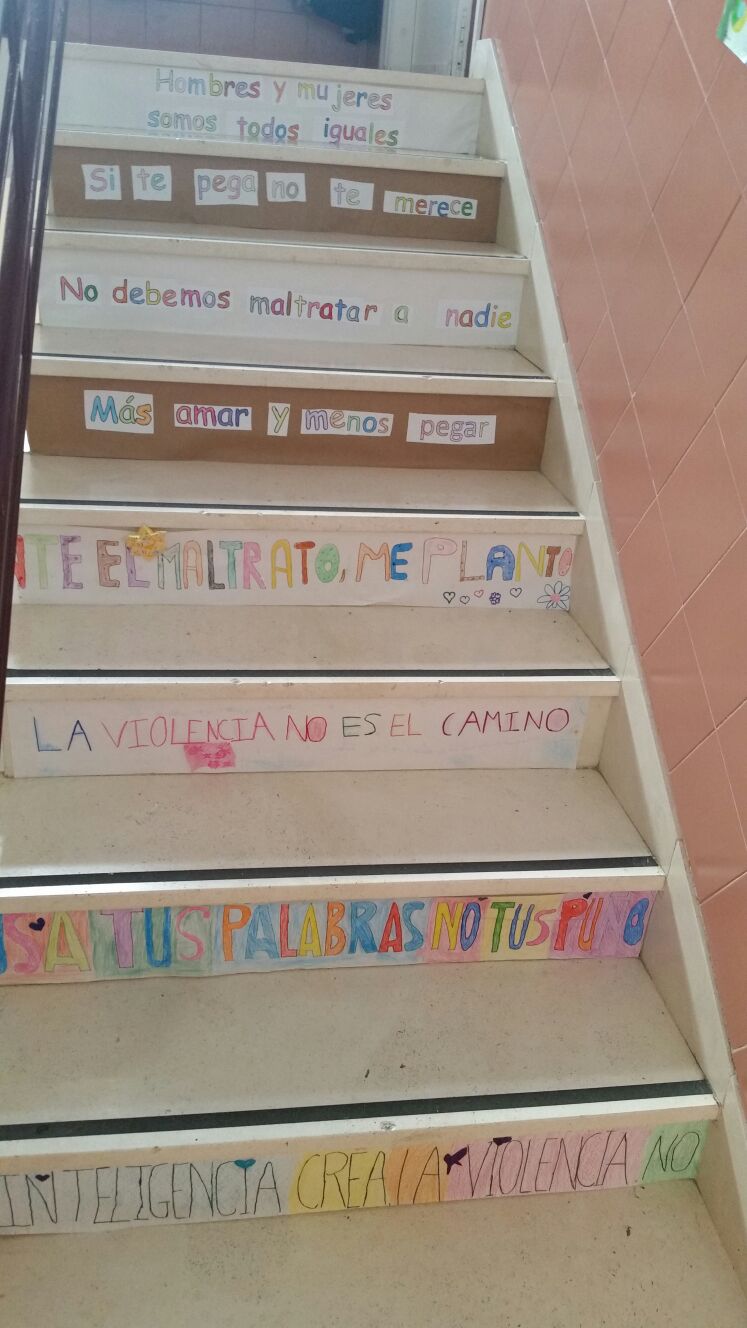 Hombres y mujeres
somos todos iguales
Si te pega no te merece
No debemos maltratar a nadie
Más amar y menos pegar
NTE EL MALTRATO, ME PLANTO
LA VIOLENCIA NO ES EL CAMINO
USA TUS PALABRAS NO TUS PUÑO
INTELIGENCIA CREA LA VIOLENCIA NO